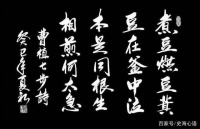 煮豆燃豆萁
豆在釜中泣
本是同根生
相煎何太急
曹植七步詩
癸巳年夏
百家号/史海心语